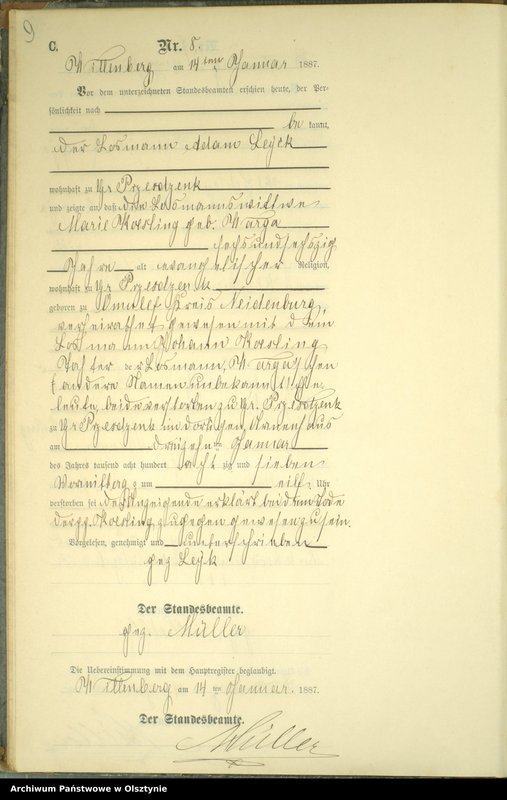 9
C.
Nr. 8.
Wittenberg am 14ten Januar 1887.
Vor dem unterzeichneten Standesbeamten erschien heute, der Per-
sönlichkeit nach
be kannt,
der Losmann Adam Leyck
wohnhaft zu Gr Przesdzenk
und zeigte an, daß die Losmannswittwe
Marie Kossling geb. Warga
sechsundsechszig
Jahre alt evangelischer Religion,
wohnhaft zu Gr Przesdzenk
geboren zu Omulef Kreis Neidenburg,
verheirathet gewesen mit dem
Losmann Johann Kossling
Tochter der Losmann, Warga'schen
(andere Namen unbekannt) Ehe-
leute, beide verstorben zu Gr. Przesdzenk
zu Gr Przesdzenk im dortigen Armenhaus
am dreizehnten Januar
des Jahres tausend acht hundert acht zig und sieben
Vormittags um eilf Uhr
verstorben sei der Anzeigende erklärt bei dem Tode
der p. Kossling zugegen gewesen zu sein.
Vorgelesen, genehmigt und unterschrieben
gez Leyk
Der Standesbeamte.
gez. Müller
Die Uebereinstimmung mit dem Hauptregister beglaubigt.
Wittenberg am 14 ten Januar. 1887.
Der Standesbeamte.
Müller
Archiwum Państwowe w Olsztynie